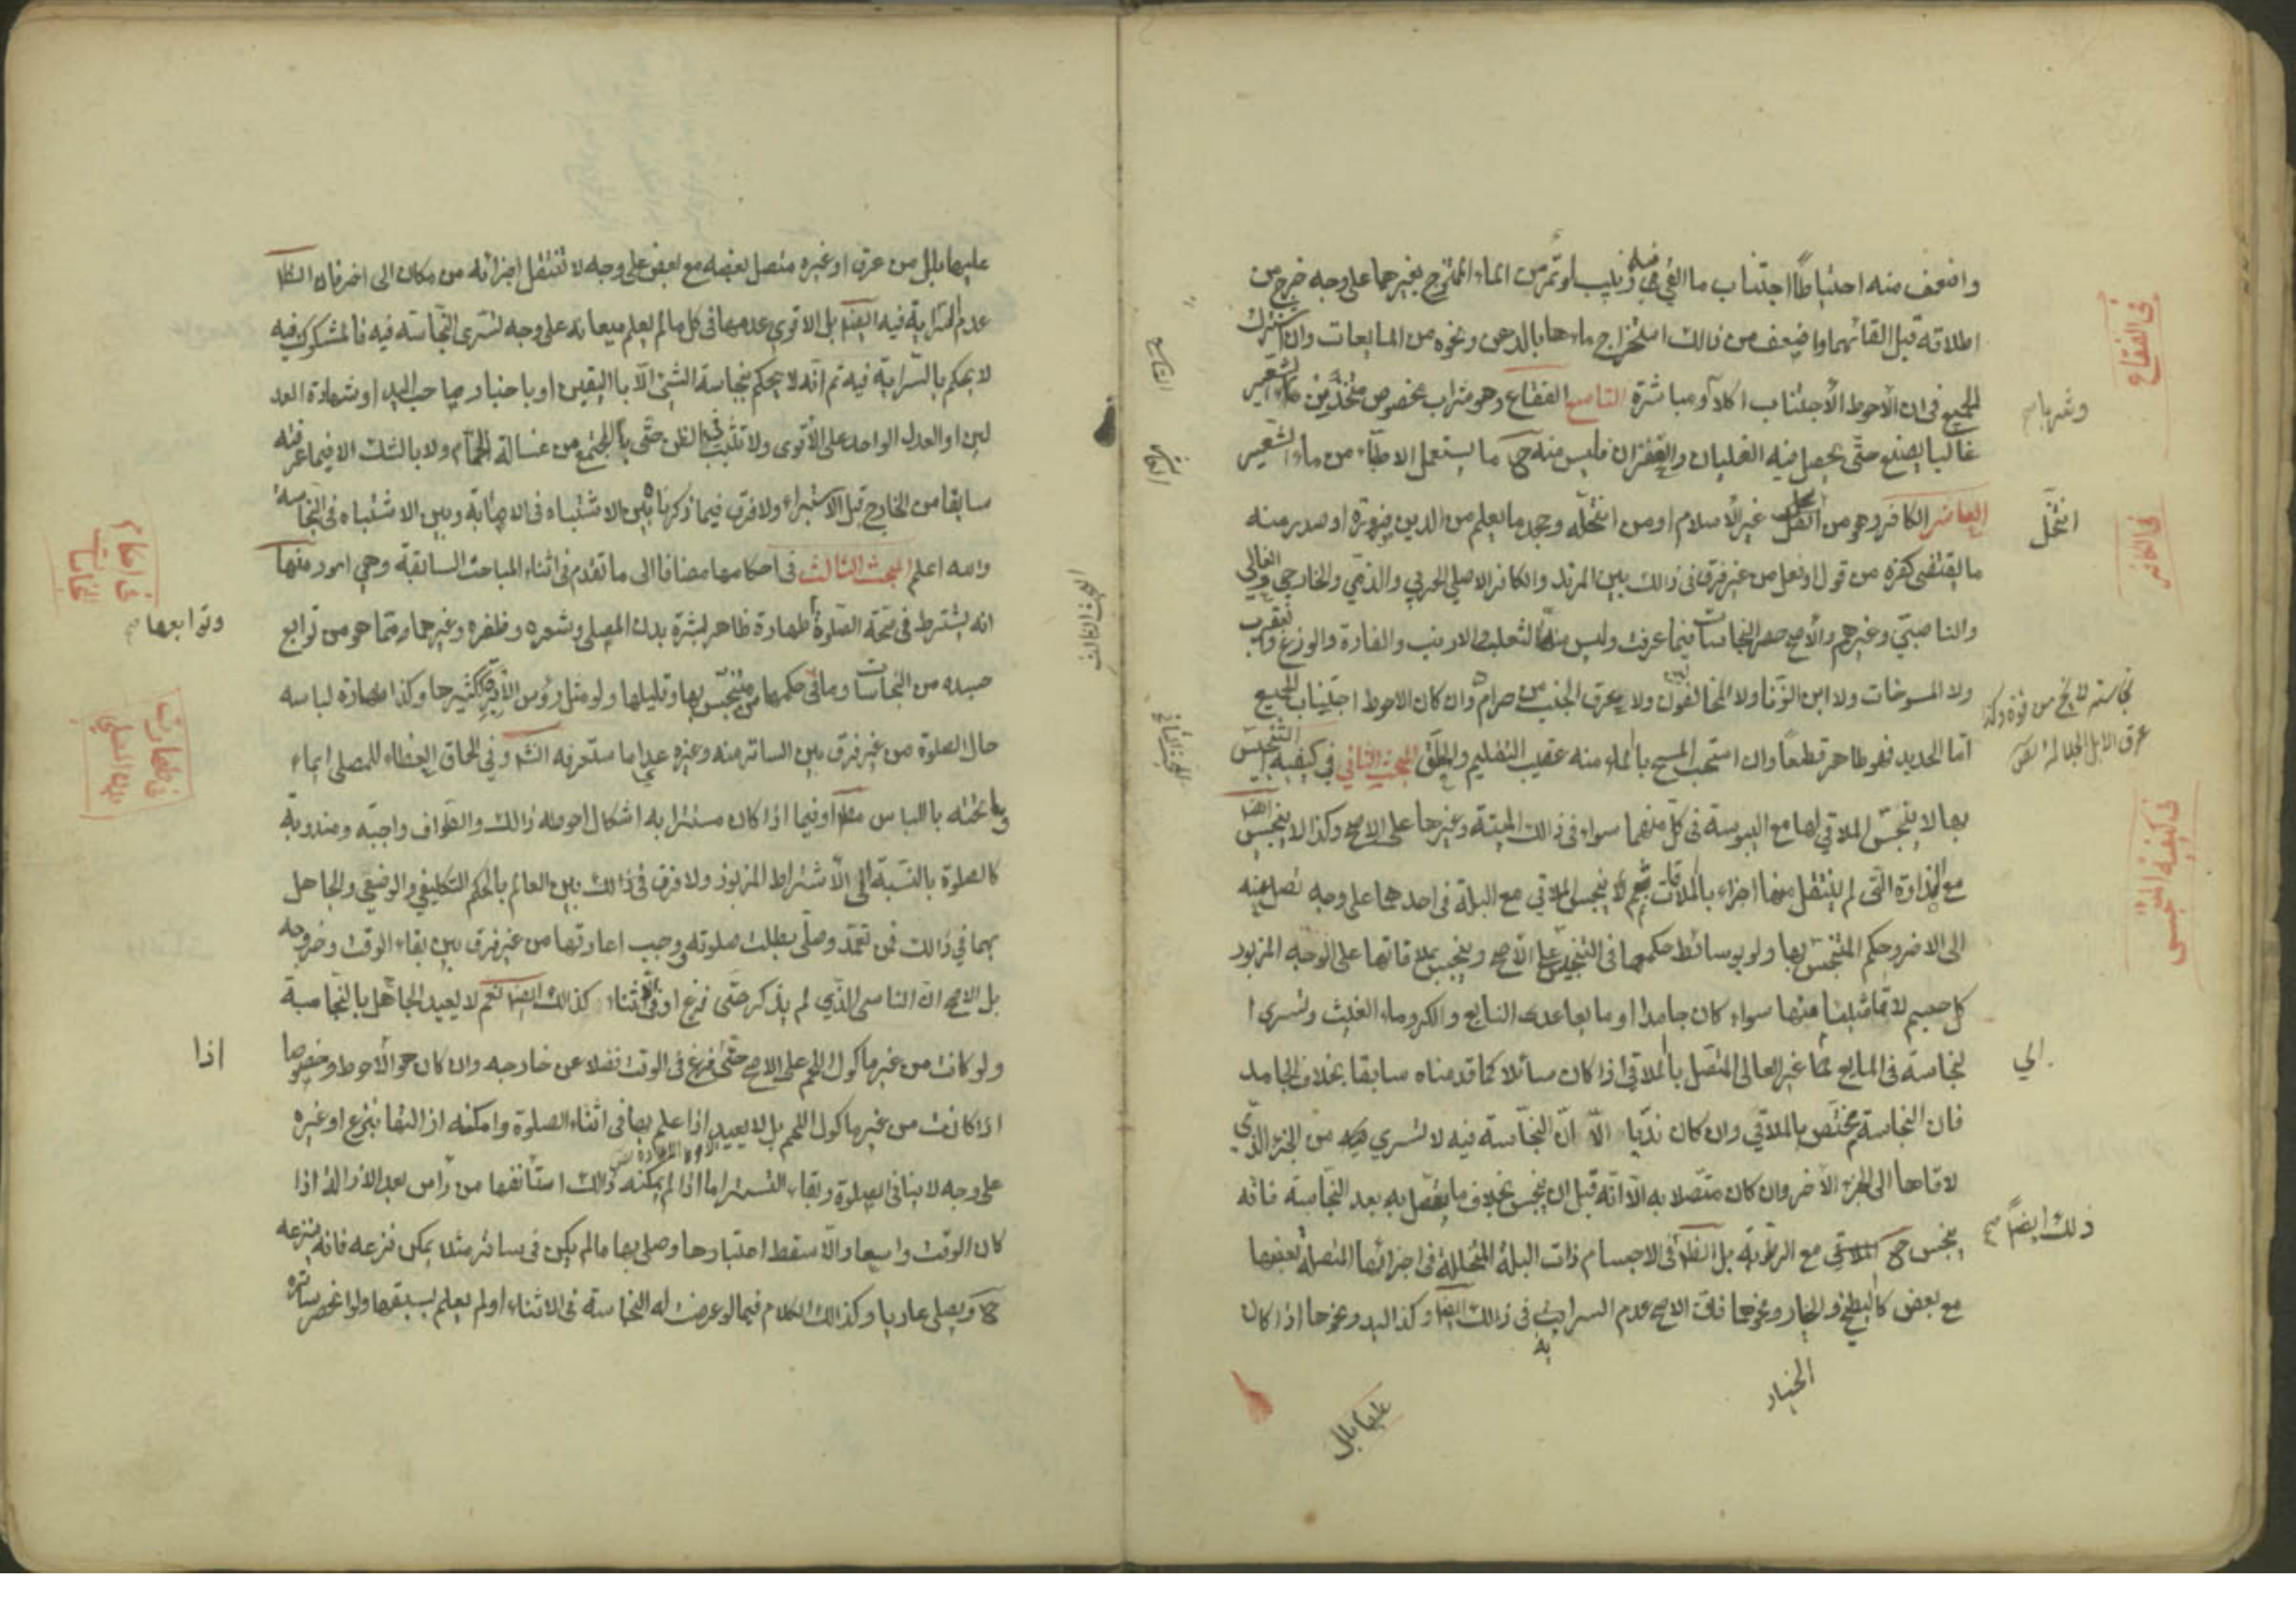 واضعف منه احتياطاً اجتناب ما القي فيه زبيب او تمر من الماء الممتزج بغيرهما على وجه خرج من
اطلاقه قبل القائهما واضعف من ذالك استخراج ماءها بالدهن ونحوه من المايعات وان اشترك
الجميع في ان الأحوط الأجتناب اكلاً ومباشرة التاسع الفقاع وهو شراب مخصوص متخذ من ماء الشعير
غالبا يصنع حتى يحصل فيه الغليان والقفزان فليس منه ح ما يستعمل الاطباء من ماء الشعير
العاشر الكافر وهو من انتحل غير الأسلام او من انتحله وجحد ما يعلم من الدين ضرورة او صدر منه
ما يقتضى كفره من قول او فعل من غير فرق فى ذالك بين المرتد والكافر الاصلي الحربي والذمي والخارجي والغالي
والناصبي وغيرهم والأصح حصر النجاسات فيما عرفت وليس منها الثعلب والارنب والفارة والوزغ والعقرب
ولا المسوخات ولا ابن الزنا ولا المخالفون ولا عرق الجنب من حرام وان كان الاحوط اجتناب الجميع
اما الحديد فهو طاهر قطعاً وان استحب المسح بالماء منه عقيب التقليم والحلق المبحث الثاني في كيفية التنجيس
بها لا ينجس الملاقي لها مع اليبوسة فى كل منهما سواء فى ذالك الميتة وغيرها على الاصح وكذا لا ينجس ايضا
مع النداوة التى لم ينتقل منها اجزاء بالملاقات نعم ينجس الملاقي مع البلة فى احدهما على وجه تصل منه
الى الاخر وحكم المتنجس بها ولو بوسائط حكمها فى التنجيس على الأصح وينجس بملاقاتها على الوجه المزبور
كل جسم لاقاشيئا منها سواء كان جامدا او مايعا عدى النابع والكر وماء الغيث وتسري ا
لنجاسة فى المايع غير العالى المتصل بالملاقي اذا كان سائلا كما قدمناه سابقا بخلاف الجامد
فان النجاسة تختص بالملاقي وان كان نديا الا ان النجاسة فيه لا تسري من الجزء الذي
لاقاها الى الجزء الأخر وان كان متصلا به الا انه قبل ان ينجس بخلاف ما يتصل به بعد النجاسة فانه
ينجس ح الملاقي مع الرطوبة بل الظاهر فى الاجسام ذات البلة المتخللة فى اجزائها المتصلة بعضها
مع بعض كالبطيخ والخيار ونحوهما فان الاصح عدم السراية فى ذالك ايضا وكذا اليد ونحوها اذا كان
الخيار
عليها بلل
في الفقاع
وشربا صح
انتحل
في الكافر
عرق الابل الجلالة
في كيفية التنجيس
الي
ذلك ايضاً صح
التاسع
العاشر
المبحث الثاني
المبحث الثالث
عليها بلل من عرق او غيره متصل بعضه مع بعض على وجه لا تنتقل اجزائه من مكان الى اخر فان الظا
عدم السراية فيه ايضا بل الاقوى عدمها فى كل ما لم يعلم ميعانه على وجه تسرى النجاسة فيه فالمشكوك فيه
لا يحكم بالسراية فيه ثم انه لا يحكم بنجاسة الشئ الا باليقين او باخبار صاحب اليد او شهادة العد
لين او العدل الواحد على الأقوى ولا تثبت بالظن حتى بالمجتمع من غسالة الحمام ولا بالشك الا فيما عرفته
سابقا من الخارج قبل الاستبراء ولا فرق فيما ذكرنا بين الاشتباه فى الاصابة وبين الاشتباه فى النجاسة
والله اعلم المبحث الثالث فى احكامها مضافا الى ما تقدم فى اثناء المباحث السابقة وهي امور منها
انه يشترط فى صحة الصلوة طهارة ظاهر بشرة بدن المصلى وشعره وظفره وغيرهما مما هو من توابع
جسده من النجاسات وما فى حكمها من متنجس بها وقليلها ولو مثل رؤس الأبر ككثيرها وكذا طهارة لباسه
حال الصلوة من غير فرق بين الساتر منه وغيره عدا ما ستعرفه انشاء وفي الحاق الغطاء للمصلى ايماء
وما تحته باللباس مطلقا او فيما اذا كان مستترا به اشكال احوطه ذالك والطواف واجبه ومندوبه
كالصلوة بالنسبة الى الأشتراط المزبور ولا فرق فى ذالك بين العالم بالحكم التكليفي والوضعي والجاهل
بهما في ذالك فمن تعمد وصلى بطلت صلوته ووجب اعادتها من غير فرق بين بقاء الوقت وخروجه
بل الاصح ان الناسى الذي لم يذكر حتى فرغ او فى الاثناء كذالك ايضا نعم لا يعيد الجاهل بالنجاسة
ولو كانت من غير ماكول اللحم على الاصح حتى فرغ فى الوقت فضلا عن خارجه وان كان هو الأحوط وخصوصا
اذا كانت من غير ماكول اللحم بل لا يعيد اذا علم بها فى اثناء الصلوة وامكنه ازالتها بنزع او غيره
على وجه لا ينافى الصلوة وبقاء التستر اما اذا لم يمكنه ذالك استأنفها من رأس بعد الازالة اذا
كان الوقت واسعا والا سقط اعتبارها وصلى بها ما لم يكن فى ساتر مثلا يمكن نزعه فانه ينزعه
ح ويصلي عاريا وكذالك الكلام فيما لو عرضت له النجاسة فى الاثناء او لم يعلم بسبقها ولو انحصر ساتره
في احكام النجاسات
وتوابعها
في طهارت بدن المصلي
اذا